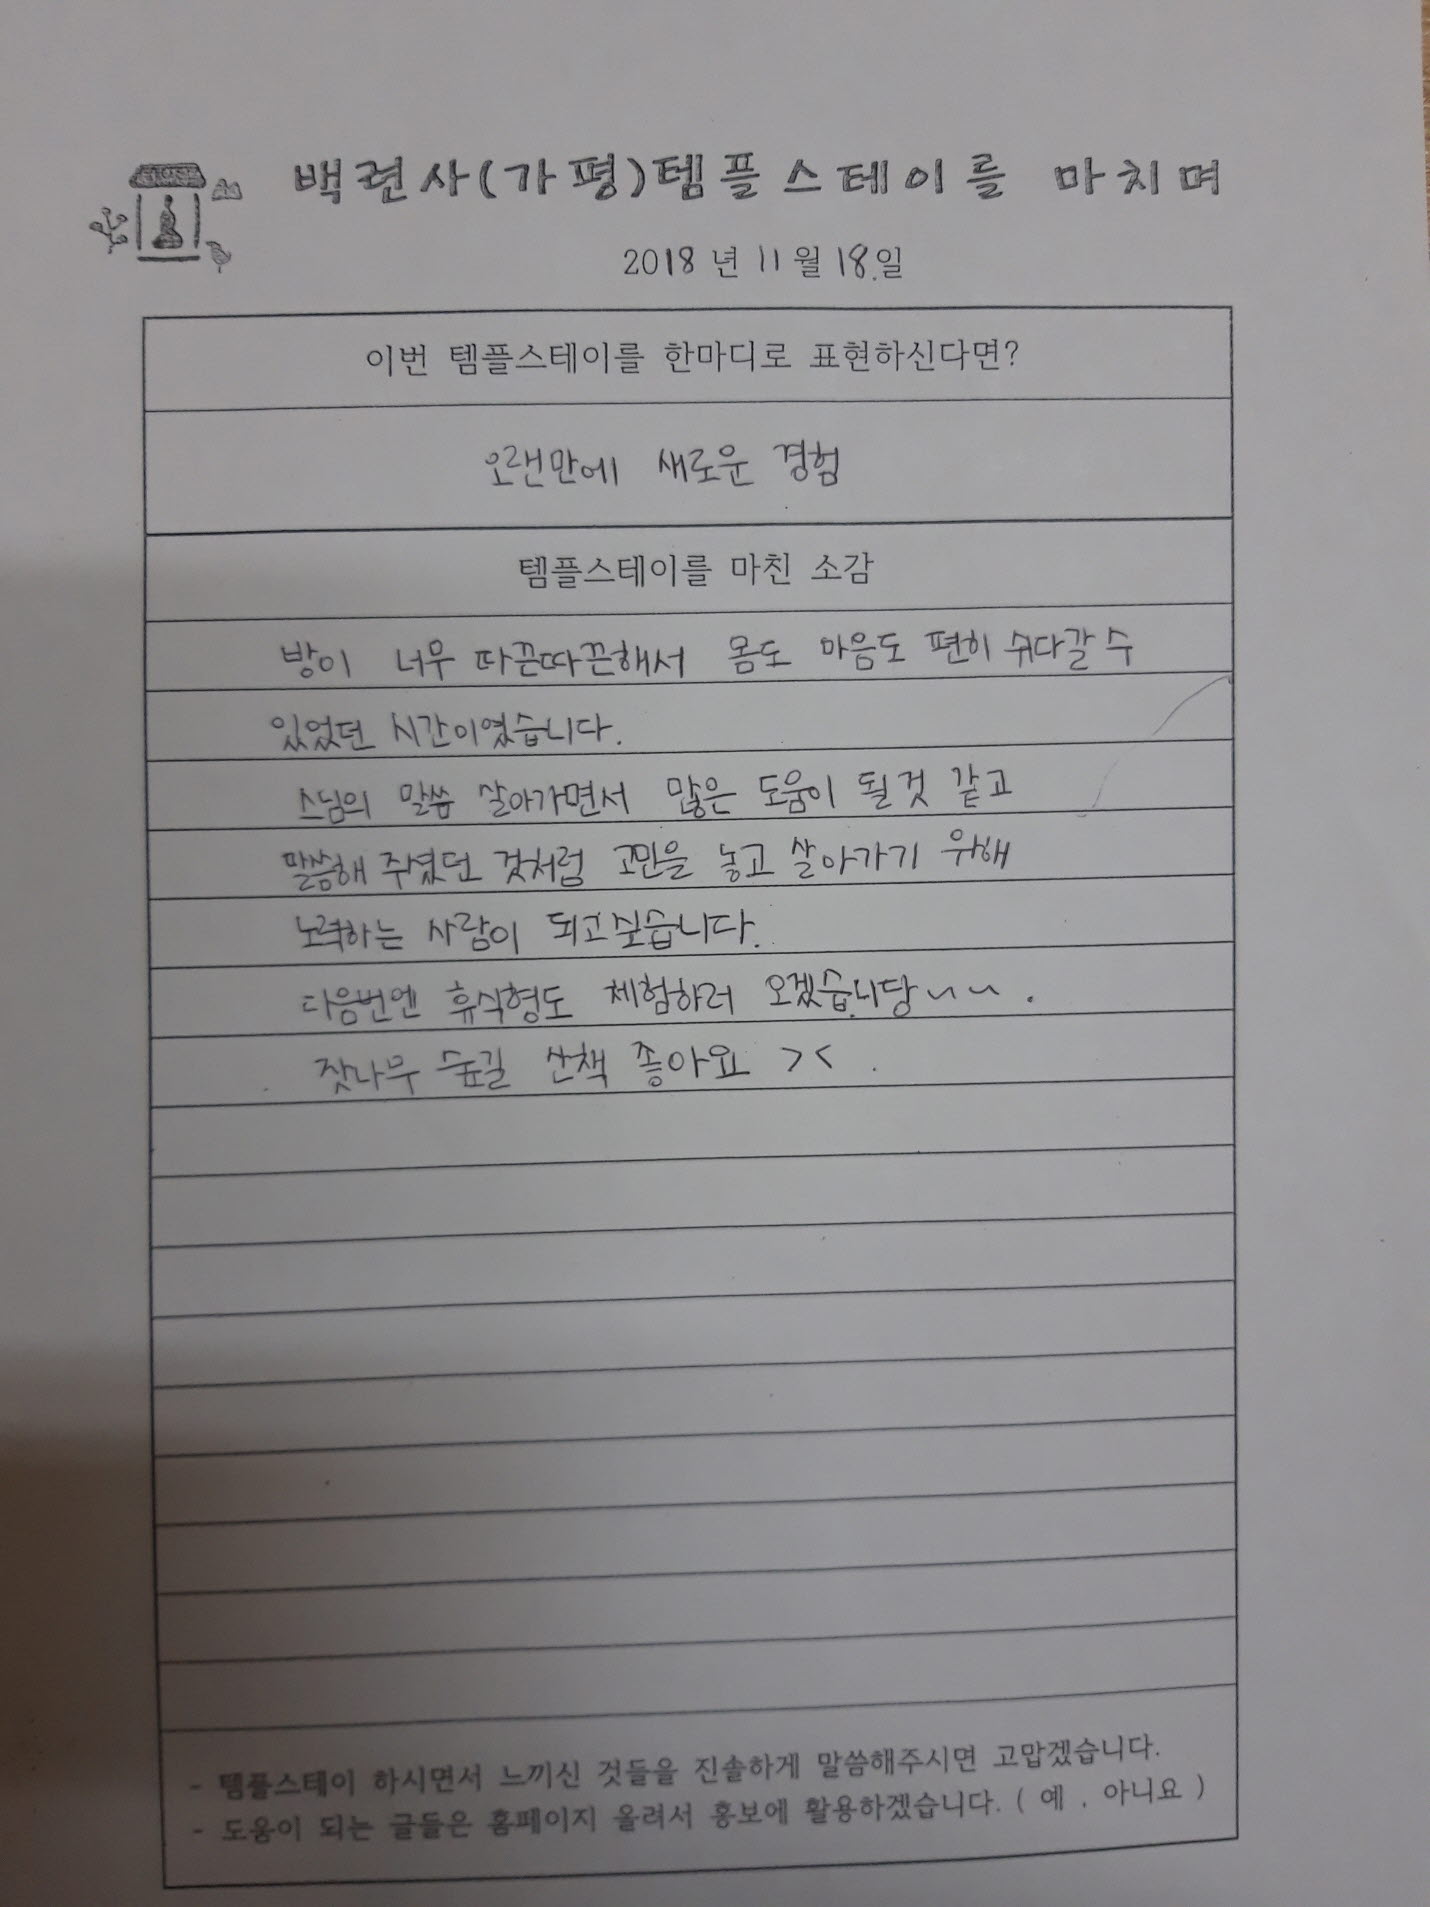 백련사(가평)템플스테이를 마치며
2018년 11월 18일
이번 템플스테이를 한마디로 표현하신다면?
오랜만에 새로운 경험
템플스테이를 마친 소감
방이 너무 따끈따끈해서 몸도 마음도 편히 쉬다갈 수
있었던 시간이였습니다.
스님의 말씀 살아가면서 많은 도움이 될것 같고
말씀해 주셨던 것처럼 고민을 놓고 살아가기 위해
노력하는 사람이 되고싶습니다.
다음번엔 휴식형도 체험하러 오겠습니당~~.
잣나무 숲길 산책 좋아요 ><.
- 템플스테이 하시면서 느끼신 것들을 진솔하게 말씀해주시면 고맙겠습니다.
- 도움이 되는 글들은 홈페이지 올려서 홍보에 활용하겠습니다. ( 예 , 아니요 )